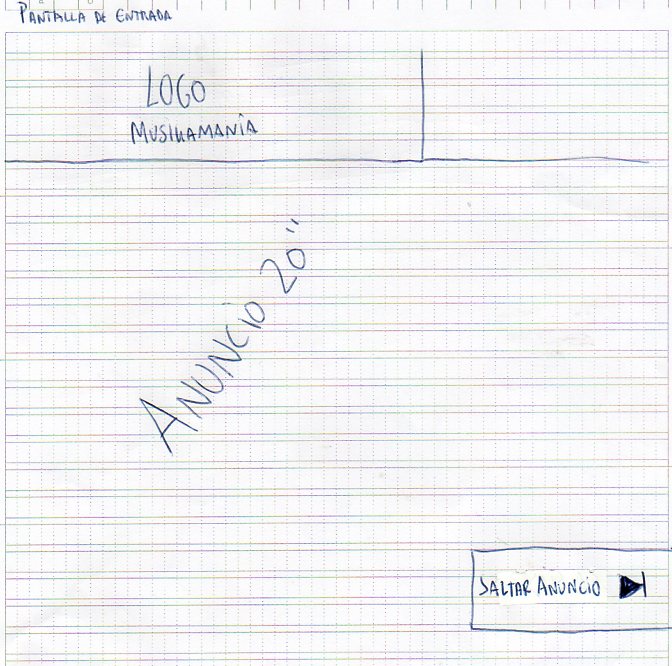 PANTALLA DE ENTRADA
LOGO
MUSIKAMANÍA
ANUNCIO 20"
SALTAR ANUNCIO